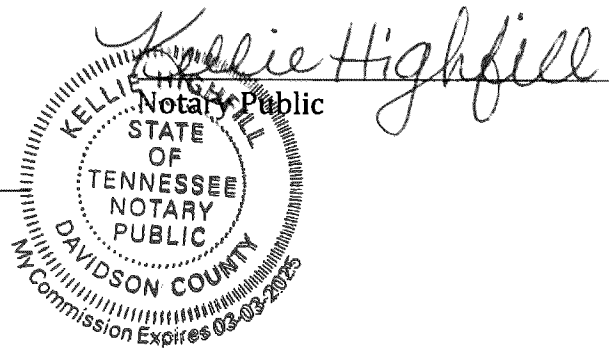 Kellie Highfill
Notary Public
KELLIE HIGHFILL
STATE
OF
TENNESSEE
NOTARY
PUBLIC
DAVIDSON COUNTY
My Commission Expires 03-03-2025